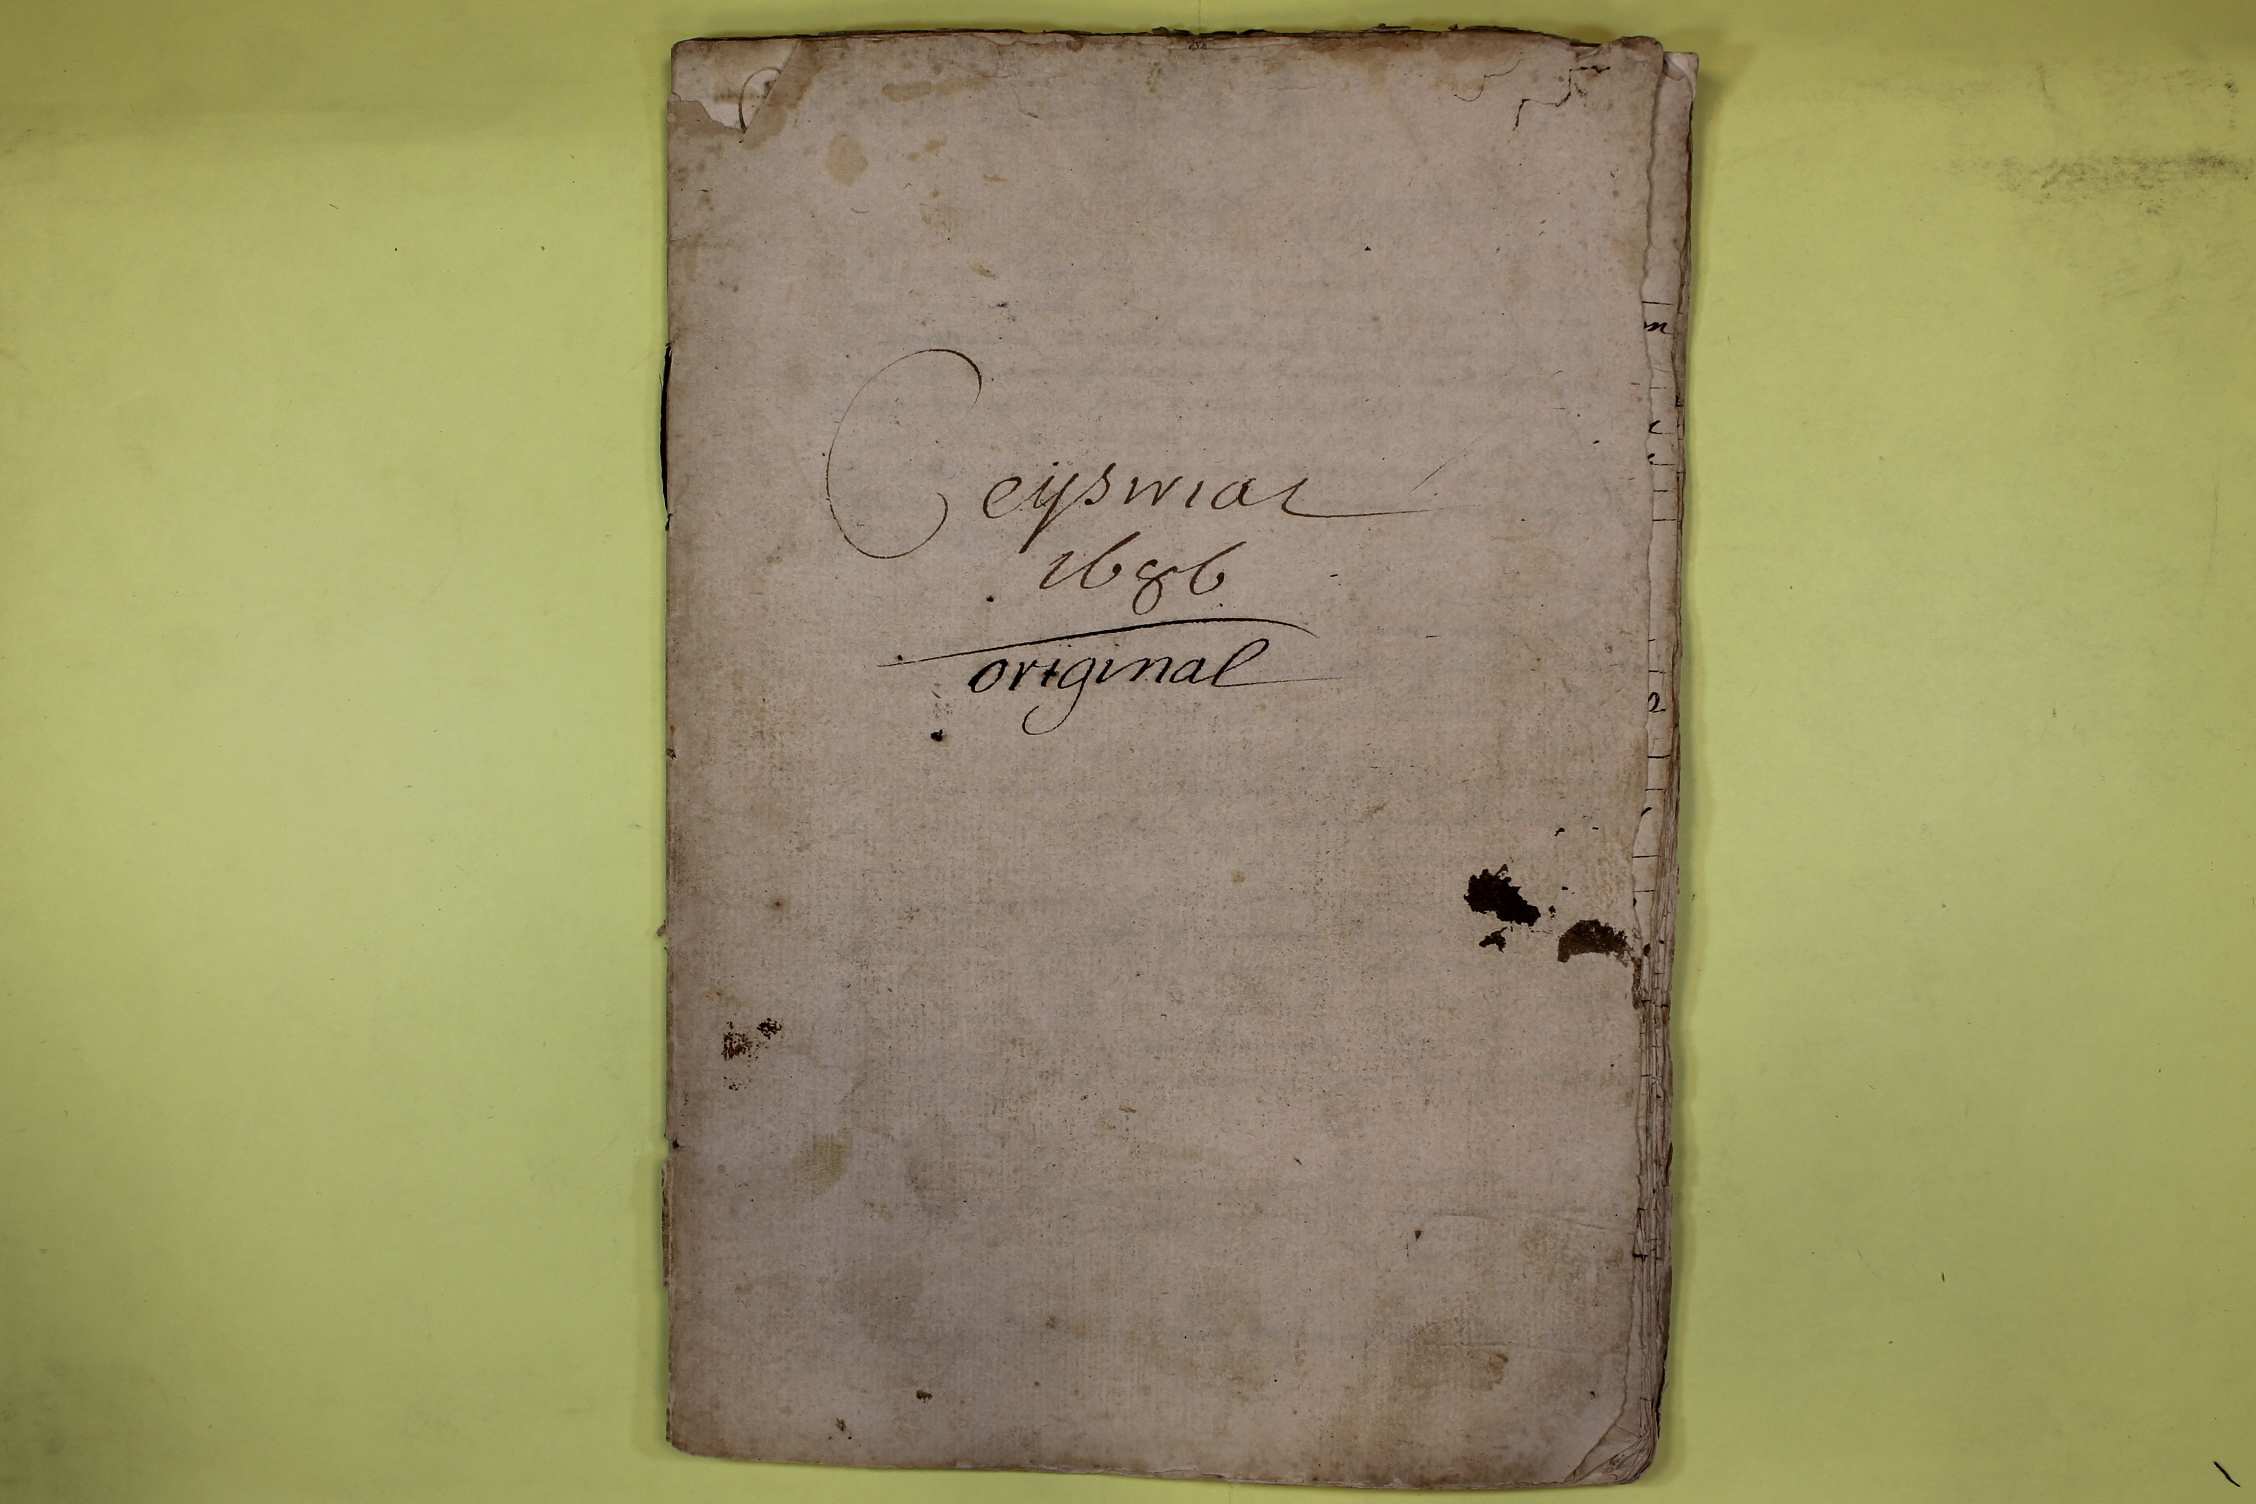 Ceyswiat
1686
original